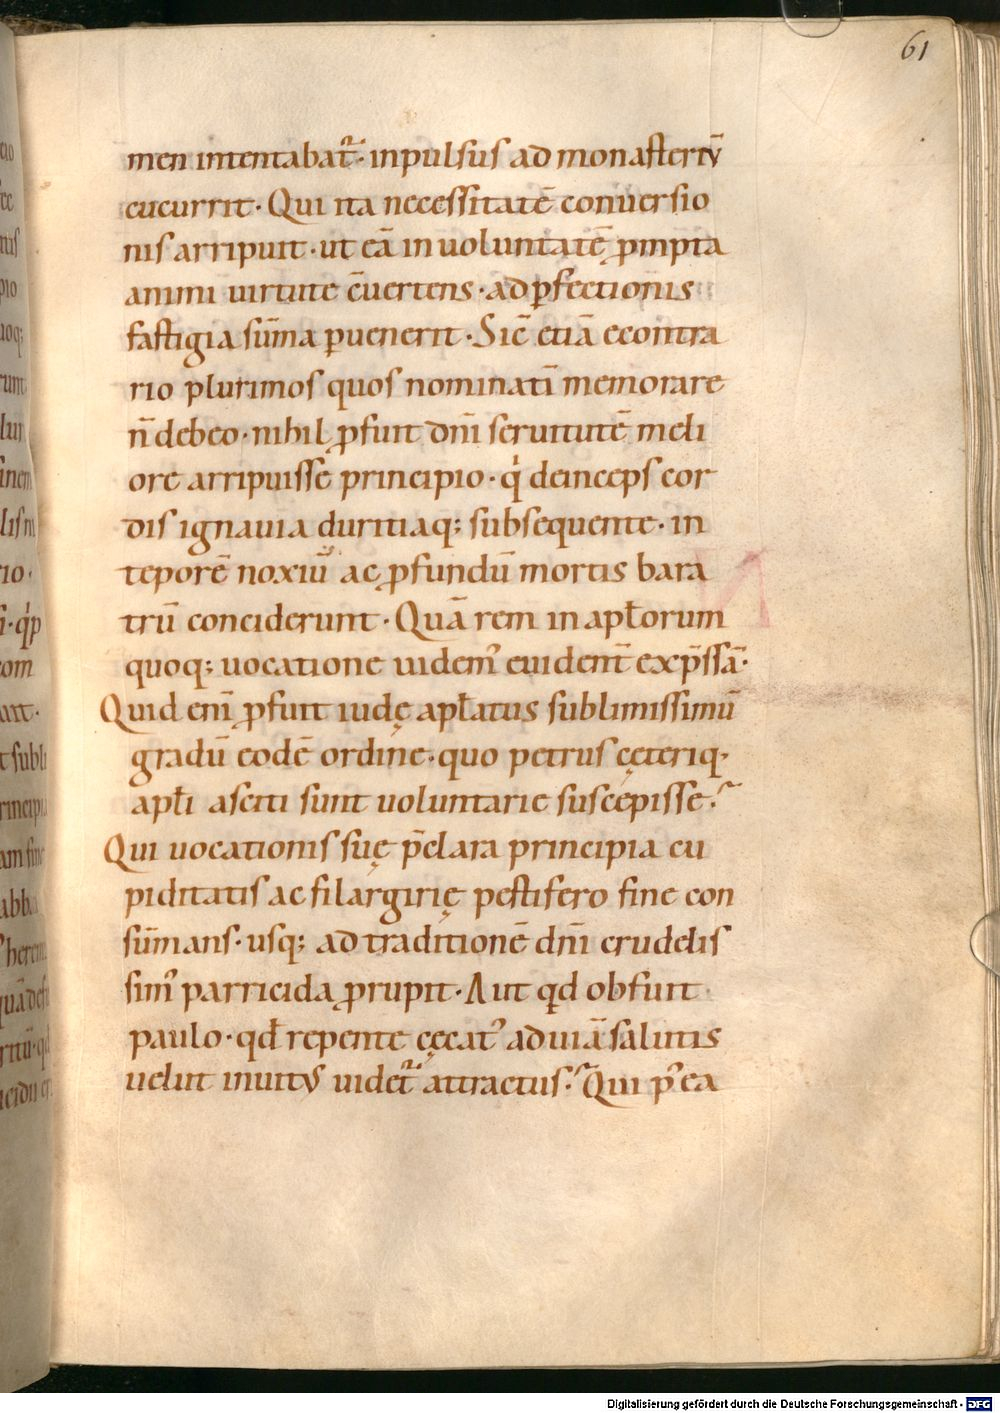 61
men intentabat᷑· inpulsus ad monasteriū
cucurrit· Qui ita necessitatē conuersio
nis arripuit· ut eā in uoluntatē ꝓmpta
animi uirtute c̄uertens· ad ꝑfectionis
fastigia sūma ꝑuenerit· Sic̄ etiā econtra
rio plurimos quos nominatī memorare
n̄ debeo· nihil ꝓfuit dn̄i seruitutē meli
ore arripuisse principio· qͥ deinceps cor
dis ignauia duritiaq; subsequente· in
teporē noxiū ac ꝓfundū mortis bara
trū conciderunt· Quā rem in apƚorum
quoq; uocatione uidem᾽ euident̄ exp̄ssā·
Quid eni̅ ꝓfuit iudę apƚatus sublimissimū
gradū eodē ordine· quo petrus cęteriq·
apƚi asciti sunt uoluntarie suscepisse?
Qui uocationis suę p̄clara principia cu
piditatis ac filargirię pestifero fine con
sūmans· usq; ad traditionē dn̄i crudelis
sim᾽ parricida ꝓrupit· Aut qd obfuit
paulo· qđ repente cęcat᾽ ad uiā salutis
uelut inuitus uidet᷑ attractus? Qui p᾽ea
Digitalisierung gefördert durch die Deutsche Forschungsgemeinschaft - DFG